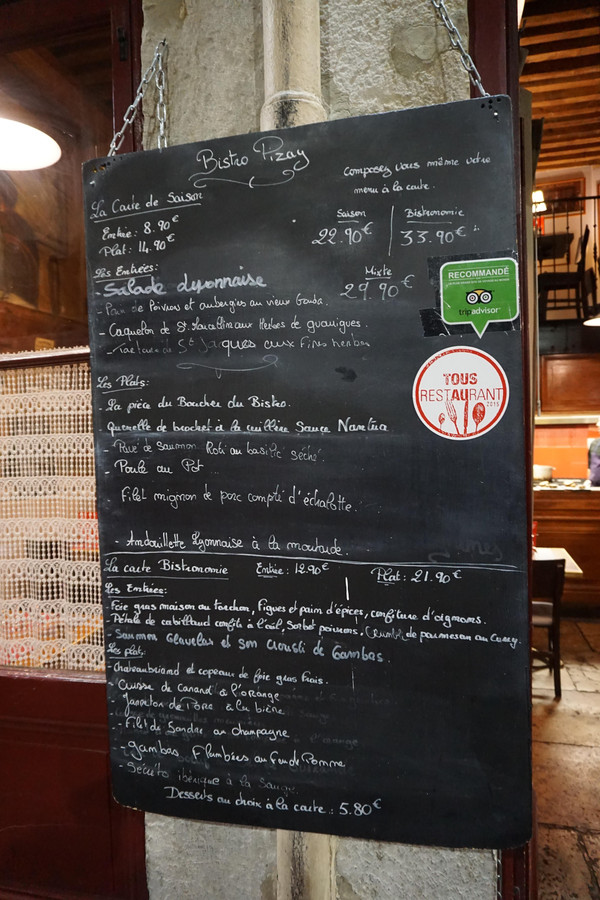 Bistro Pizay
Composez vous même votre
menu à la carte.
La Carte de Saison
Entrée : 8.90€
Plat : 14.90€
Saison
22.90€
Bistronomie
33.90€
Mixte
29.90€
Les Entrées:
- Salade lyonnaise
- Poivrons et aubergines au vieux Gouda.
- Caquelon de St Marcellin aux Herbes de guarrigues.
- St Jaques aux Fines herbes
RECOMMANDÉ
tripadvisor
TOUS
RESTAURANT
2015
Les Plats:
- La pièce du Boucher du Bistro.
Quenelle de brochet à la cuillère Sauce Nantua
- Pavé de Saumon Roti au basilic séché.
- Poule au Pot
- Filet mignon de porc compoté d'échalotte.
- Andouillette Lyonnaise à la moutarde.
La carte Bistronomie Entrée : 12.90€ Plat : 21.90€
Les Entrées:
- Foie gras maison au torchon, Figues et pain d'épices, confiture d'oignons.
- Pétale de cabillaud confit à l'ail, Sorbet poivrons, Crumble de parmesan au Curry.
- Saumon Gravelax et son crousti de Gambas.
Les plats:
- Chateaubriand et copeaux de foie gras frais.
- Cuisse de Canard à l'orange
- de Porc à la bière
- Filet de Sandre au Champagne
- Gambas Flambées au de Pomme
- Sécréto ibérique à la Sauge
Desserts au choix à la carte : 5.80€